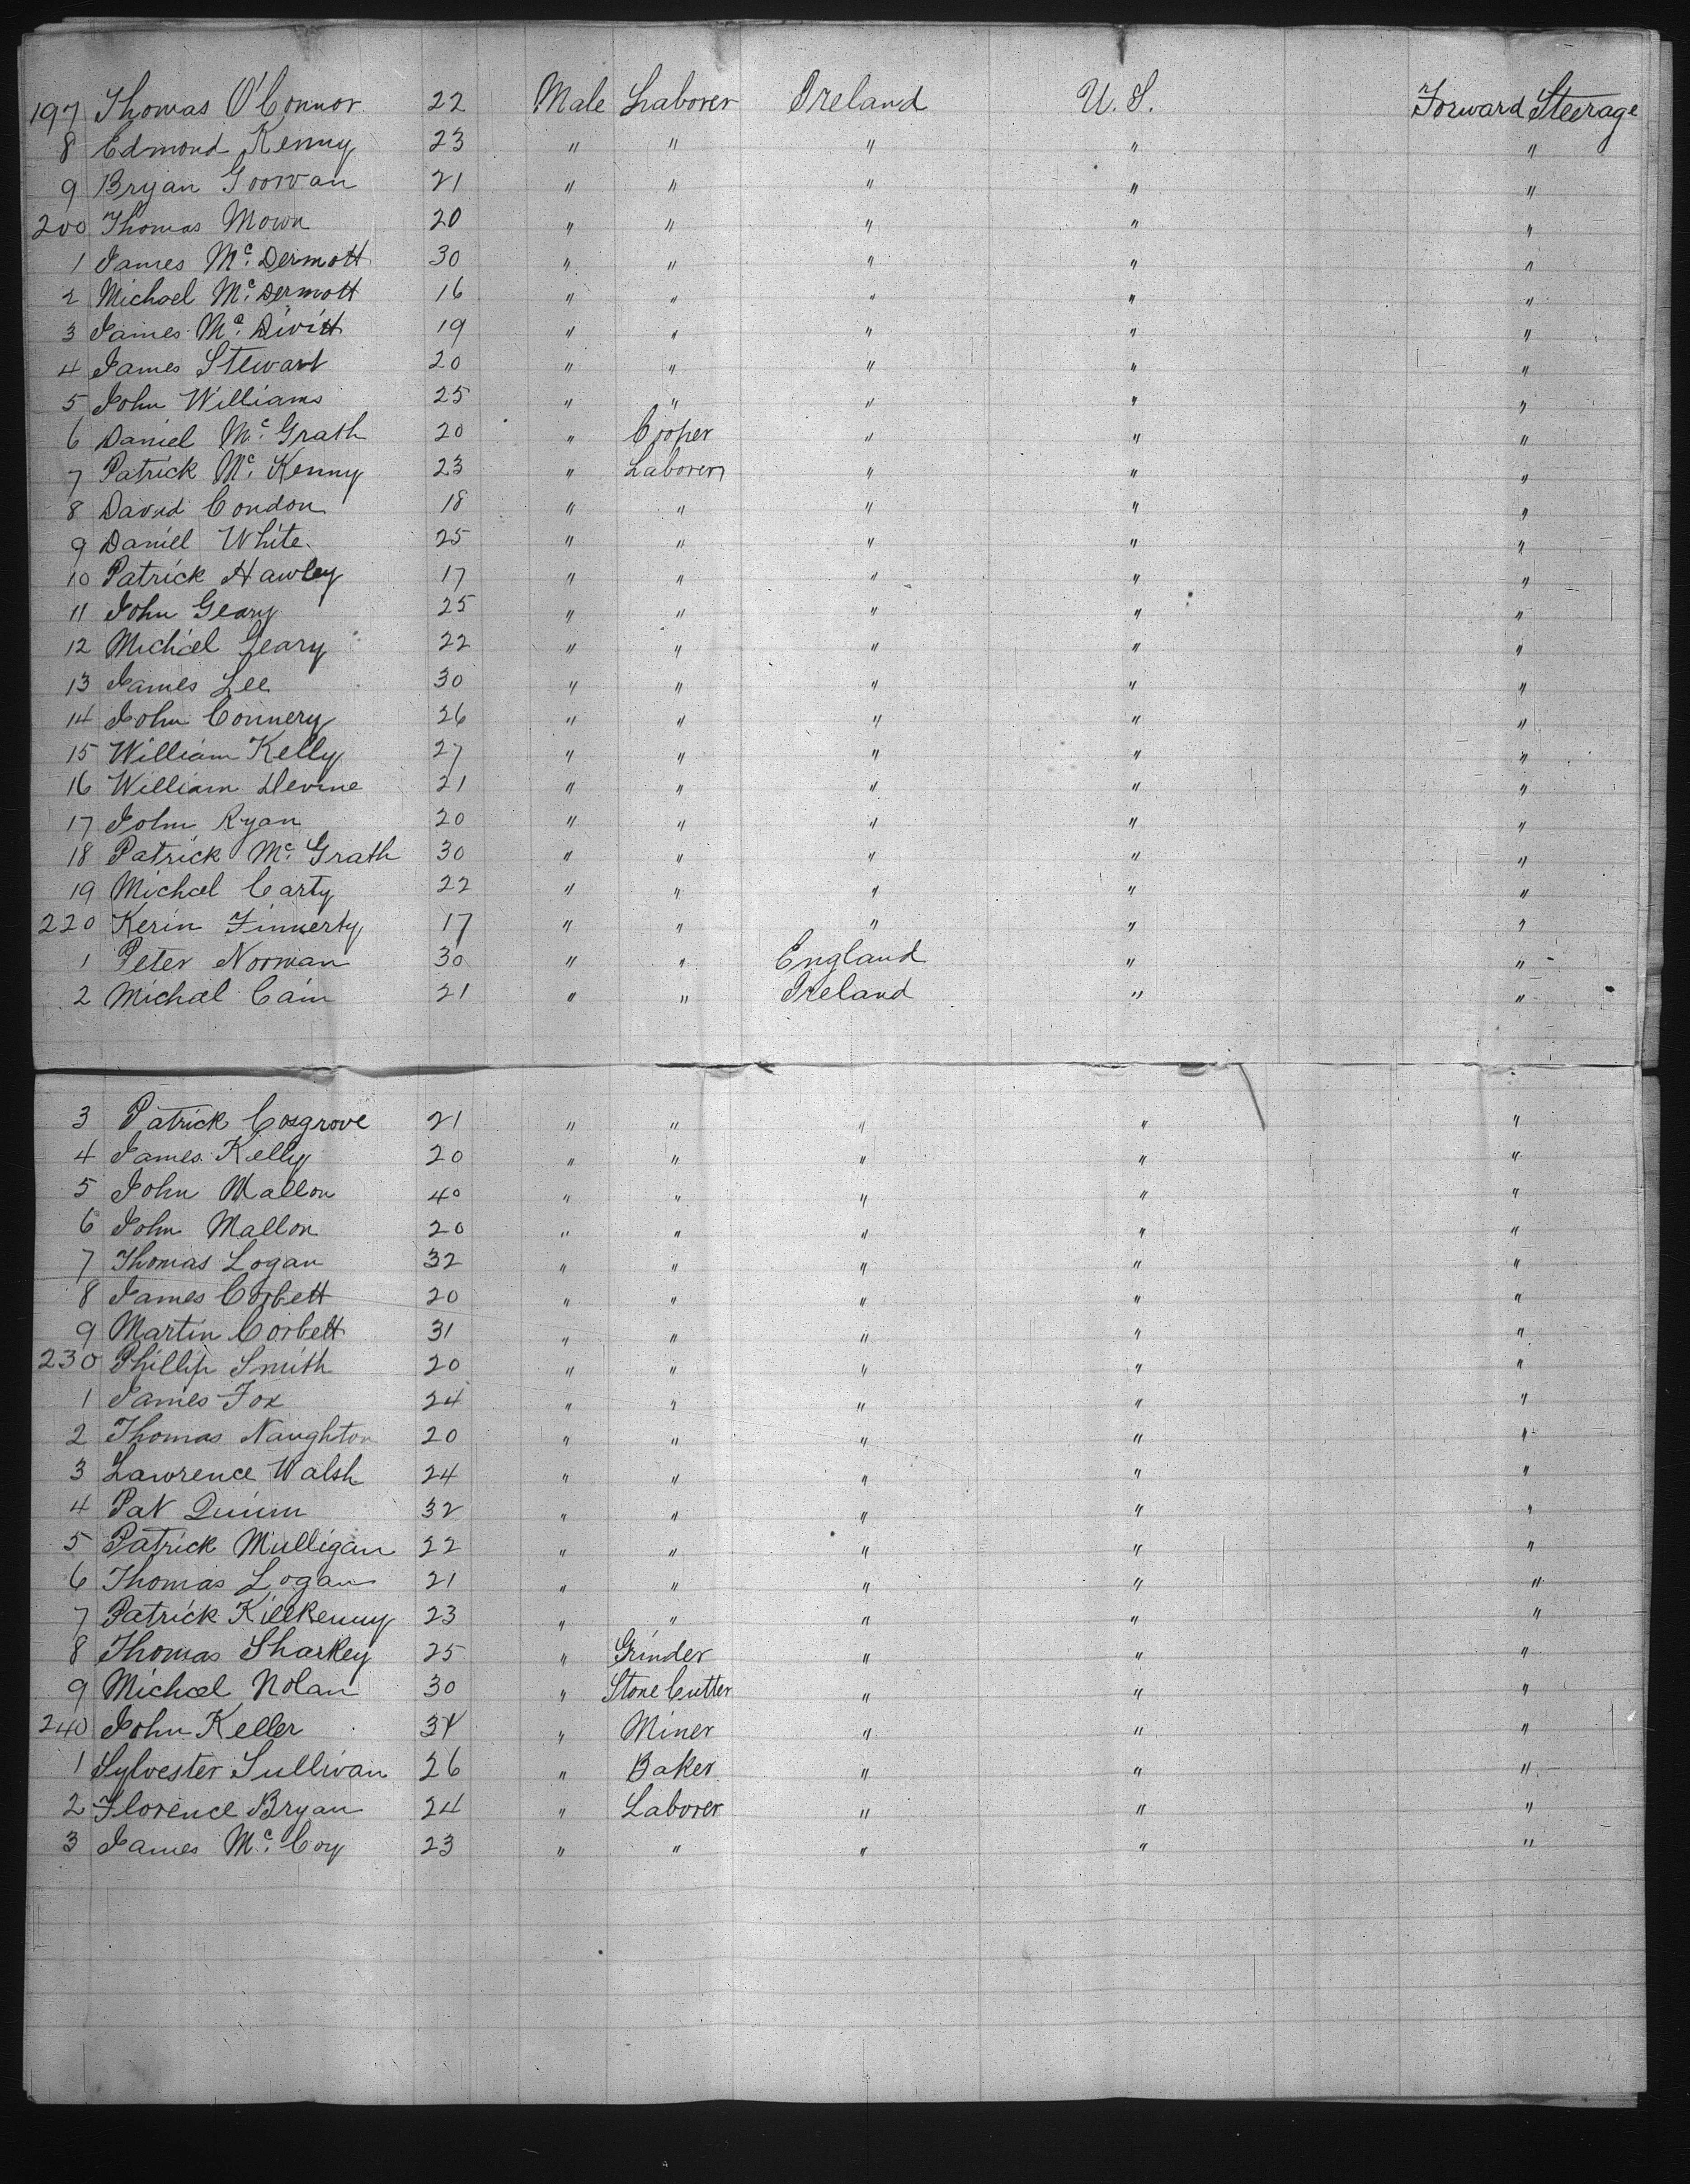 197 Thomas O'Connor 22 Male Laborer Ireland U.S. Forward Steerage
8 Edmond Kenny 23 " " " " "
9 Bryan 21 " " " " "
200 Thomas Mown 20 " " " " "
1 James Mc. Dermott 30 " " " " "
2 Michael Mc. Dermott 16 " " " " "
3 James Mc. Divitt 19 " " " " "
4 James Stewart 20 " " " " "
5 John Williams 25 " " " " "
6 Daniel Mc. Grath 20 " Cooper " " "
7 Patrick Mc. Kenny 23 " Laborer " " "
8 David Condon 18 " " " " "
9 Daniel White 25 " " " " "
10 Patrick Hawley 17 " " " " "
11 John Geary 25 " " " " "
12 Michael Geary 22 " " " " "
13 James Lee 30 " " " " "
14 John Connery 26 " " " " "
15 William Kelly 27 " " " " "
16 William Devine 21 " " " " "
17 John Ryan 20 " " " " "
18 Patrick Mc. Grath 30 " " " " "
19 Michael Carty 22 " " " " "
220 Kerin Finnerty 17 " " " " "
1 Peter Norman 30 " " England " "
2 Michael Cain 21 " " Ireland " "
3 Patrick Cosgrove 21 " " " " "
4 James Kelly 20 " " " " "
5 John Mallon 40 " " " " "
6 John Mallon 20 " " " " "
7 Thomas Logan 32 " " " " "
8 James Corbett 20 " " " " "
9 Martin Corbett 31 " " " " "
230 Phillip Smith 20 " " " " "
1 James Fox 24 " " " " "
2 Thomas Naughton 20 " " " " "
3 Lawrence Walsh 24 " " " " "
4 Pat Quinn 32 " " " " "
5 Patrick Mulligan 22 " " " " "
6 Thomas Logan 21 " " " " "
7 Patrick Killkenny 23 " " " " "
8 Thomas Sharkey 25 " Grinder " " "
9 Michael Nolan 30 " Stone Cutter " " "
240 John Keller " Miner " " "
1 Sylvester Sullivan 26 " Baker " " "
2 Florence Bryan 24 " Laborer " " "
3 James Mc. Coy 23 " " " " "